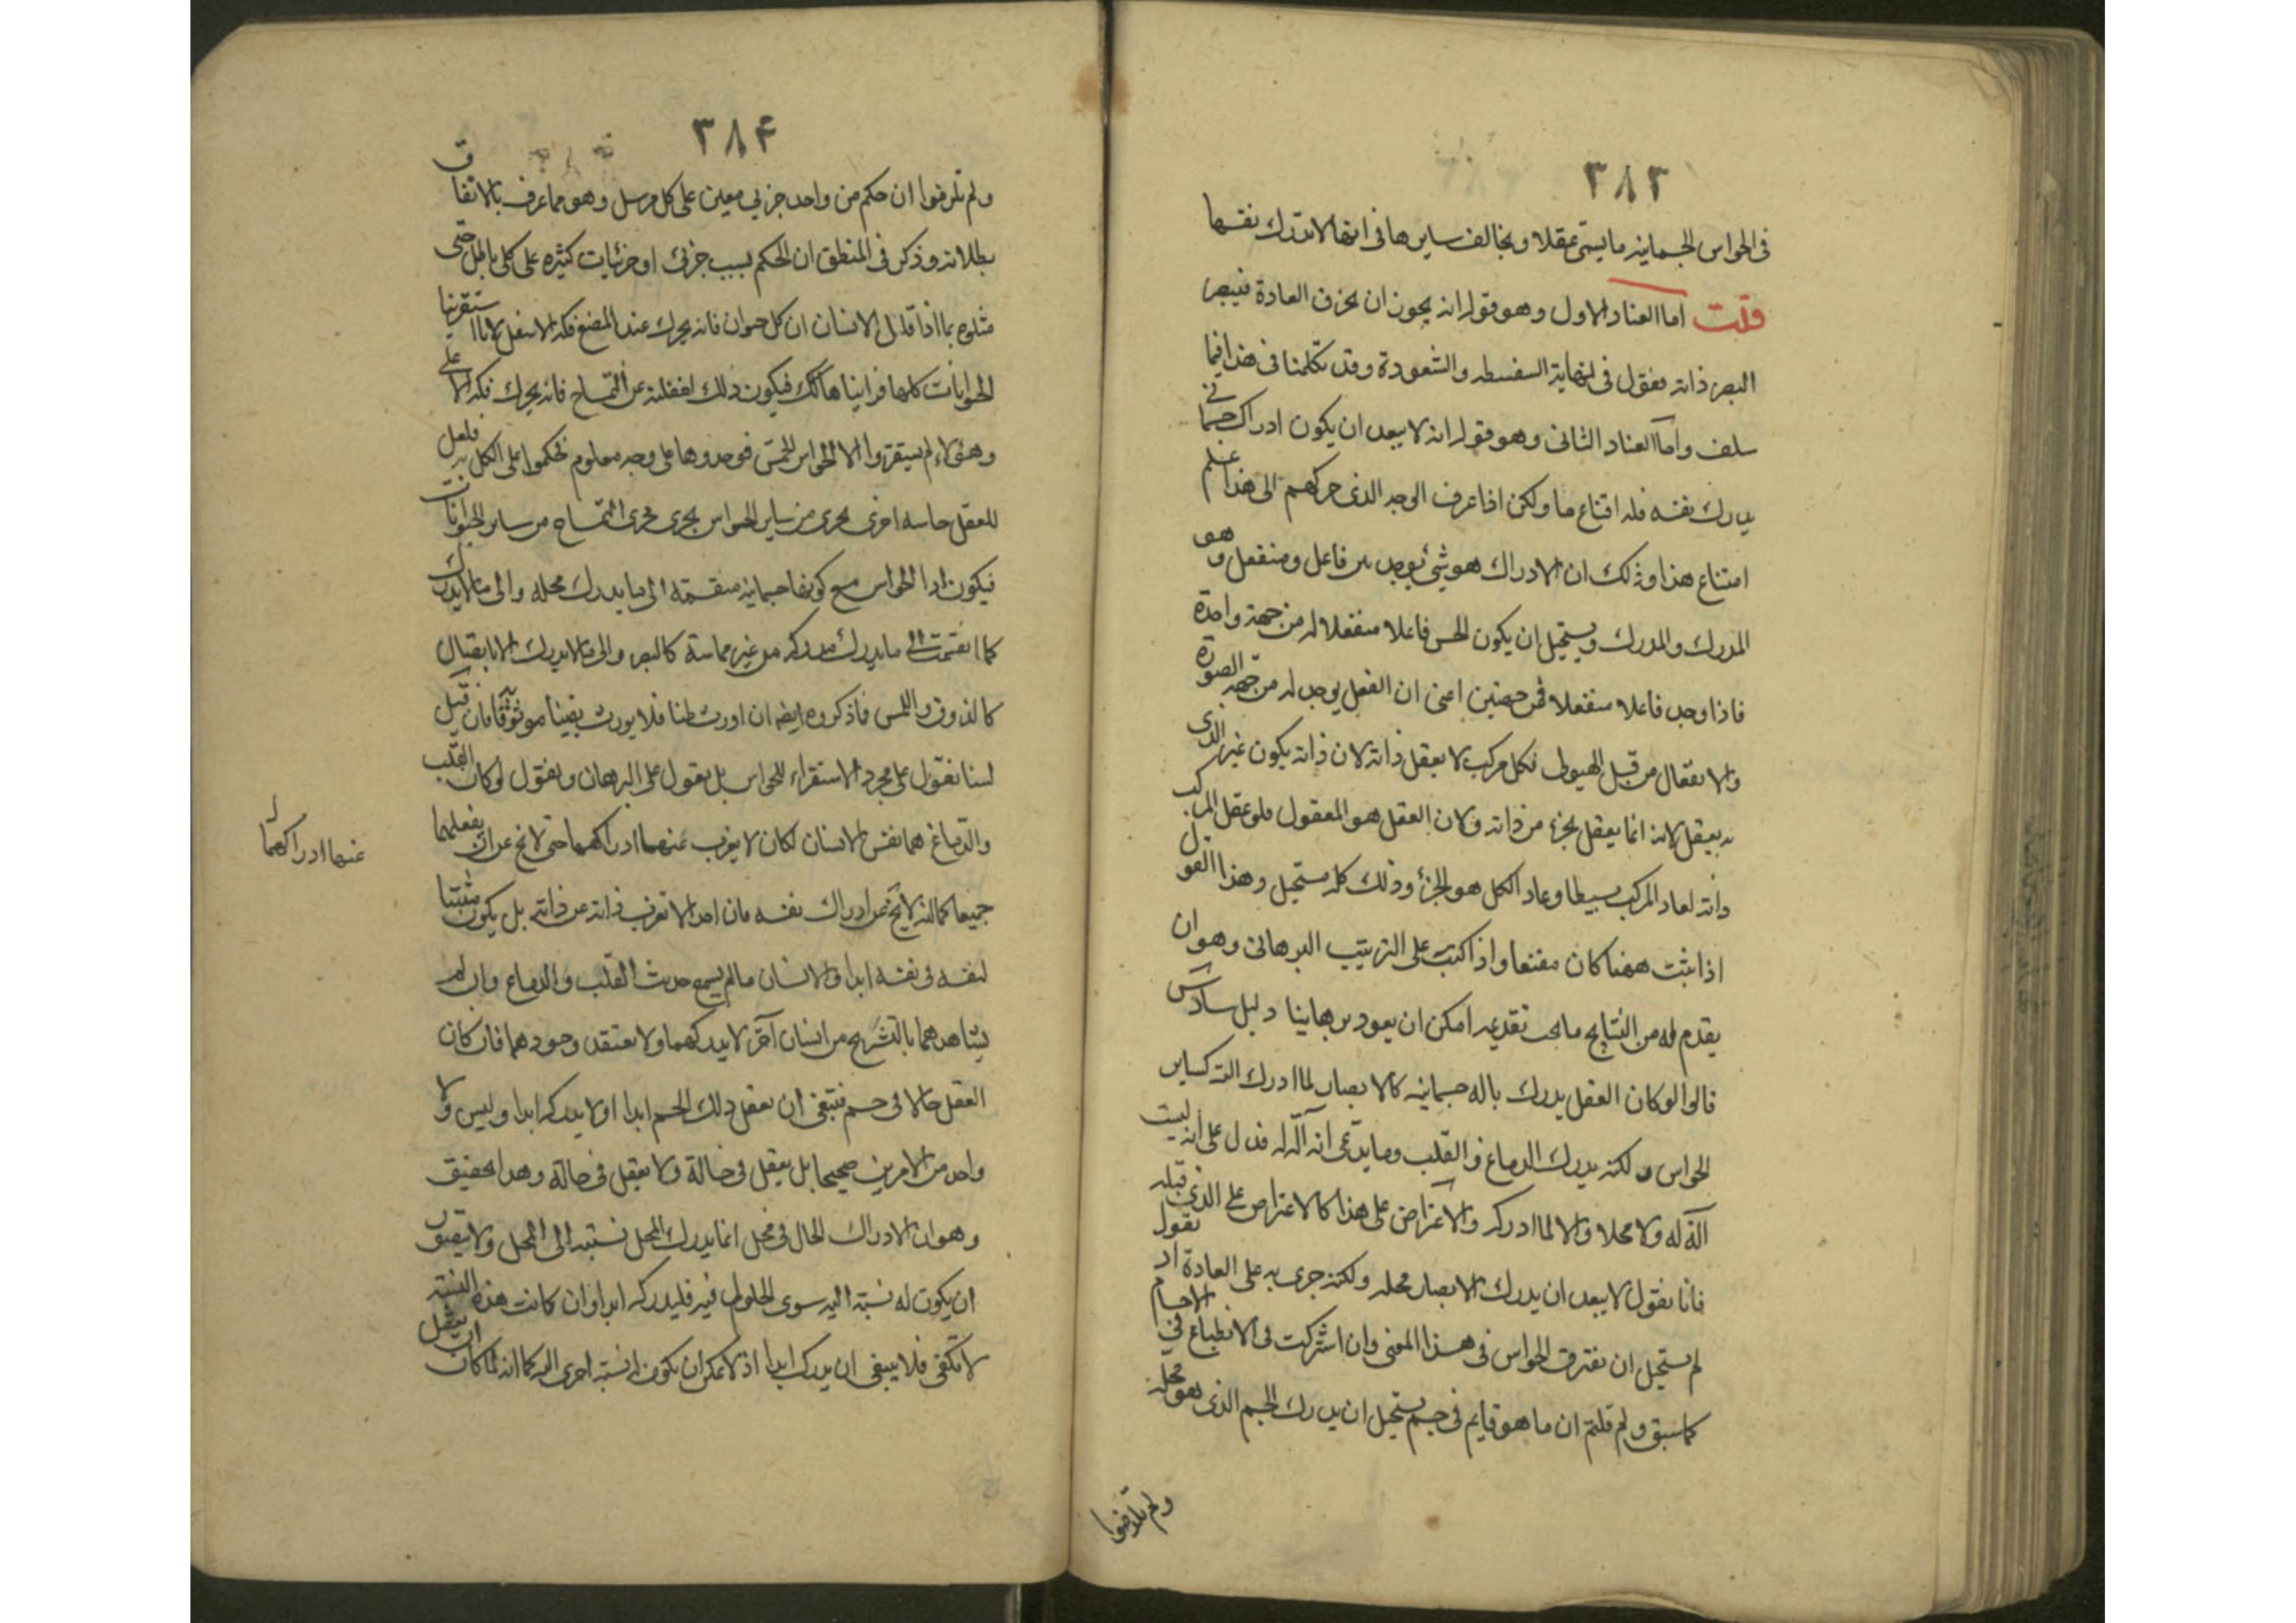 ٣٨٣
فى الحواس الجسمانيه ما يسمى عقلا و يخالف سايرها فى انها لا تدرك نفسها
قلت اما العناد الاول وهو قوله انه يجوز ان يخرق العادة فيبصر
البصر ذاته فنقول فى نهاية السفسطه والشعوذة وقد تكلمنا فى هذا فيما
سلف واما العناد الثانى وهو قوله انه لا يبعد ان يكون ادراك جسمانى
يدرك نفسه فله اقناع ما ولكن اذا عرف الوجه الذى حركهم الى هذا علم
امتناع هذا وذلك ان الادراك هو شئ يوجد بين فاعل ومنفعل وهو
المدرك والمدرك ويستحيل ان يكون الحس فاعلا منفعلا له من جهة واحدة
فاذا وجد فاعلا منفعلا فمن جهتين اعنى ان الفعل يوجد له من جهة الصورة
والانفعال من قبل الهيولى فكل مركب لا يعقل ذاته لان ذاته يكون غير الذى
به يعقل لانه انما يعقل بجزء من ذاته ولان العقل هو المعقول فلو عقل المركب
ذاته لعاد المركب بسيطا وعاد الكل هو الجزء وذلك كله مستحيل وهذا القول
اذا ثبت ههنا كان مقنعا واذا كتب على الترتيب البرهانى وهو ان
يقدم له من النتايج ما يجب تقديمه امكن ان يعود برهانيا دليل سادس
قالوا لو كان العقل يدرك باله جسمانيه كالابصار لما ادرك الته كساير
الحواس ولكنه يدرك الدماغ والقلب وما يدعى انه آلة له فدل على انه ليست
آلة له ولا محلا والا لما ادركه والاعتراض على هذا كالاعتراض على الذى قبله
فانا نقول لا يبعد ان يدرك الابصار محله ولكنه جرى به على العادة اذ نقول
لم يستحيل ان تفترق الحواس فى هذا المعنى وان اشتركت فى الانطباع فى الاجسام
كما سبق ولم قلتم ان ما هو قايم فى جسم يستحيل ان يدرك الجسم الذى هو محله
ولم تلزموا
٣٨۴
ولم تلزموا ان حكم من واحد جزيى معين على كل مرسل وهو مما عرف بالاتفاق
بطلانه وذكر فى المنطق ان الحكم بسبب جزئى او جزئيات كثيره على كلى باطل حتى
مثلوه بما اذا قال الانسان ان كل حيوان فانه يحرك عند المضغ فكه الاسفل لانا استقرينا
الحيوانات كلها فراينا ها كك فيكون ذلك لغفلته عن التمساح فانه يحرك فكه الاعلى
وهئولاء لم يستقروا الا الحواس الخمس فوجدوها على وجه معلوم فحكموا على الكل به فلعل
للعقل حاسه اخرى يجرى من ساير الحواس يجرى مجرى التمساح من ساير الحيوانات
فيكون اذا الحواس مع كونها جسمانيه منقسمة الى ما يدرك محله والى ما لا يدرك
كما انقسمت الى ما يدرك مدركه من غير مماسة كالبصر والى ما لا يدرك الا باتصال
كالذوق واللمس فاذكروه ايضه ان اورث ظنا فلا يورث يقينا موثوقا فان قيل
لسنا نعول على مجرد الاستقراء للحواس بل نعول على البرهان ونقول لو كان القلب
والدماغ هما نفس الانسان لكان لا يعزب عنهما ادراكهما حتى لا يخ عن ان يعقلهما
جميعا كما انه لا يخ عن ادراك نفسه فان احدا لا تعزب ذاته عن ذاته بل يكون مثبتا
لنفسه فى نفسه ابدا والانسان ما لم يسمع حديث القلب والدماغ وان لم
يشاهدهما بالتشريح من انسان آخر لا يدركهما ولا يعتقد وجودهما فان كان
العقل حالا فى جسم فينبغى ان يعقل ذلك الجسم ابدا او لا يدركه ابدا وليس ولا
واحد من الامرين صحيحا بل يعقل فى حالة ولا يعقل فى حالة وهذا تحقيق
وهو ان الادراك الحال فى محل انما يدرك المحل لنسبته الى المحل ولا يتصور
ان يكون له نسبة اليه سوى الحلول فيه فليدركه ابدا وان كانت هذه النسبة
لا تكفى فلا ينبغى ان يدركه ابدا اذ لا يمكن ان يكون له نسبة اخرى اليه كما انه لما كان ان يعقل
عنها ادراكهما